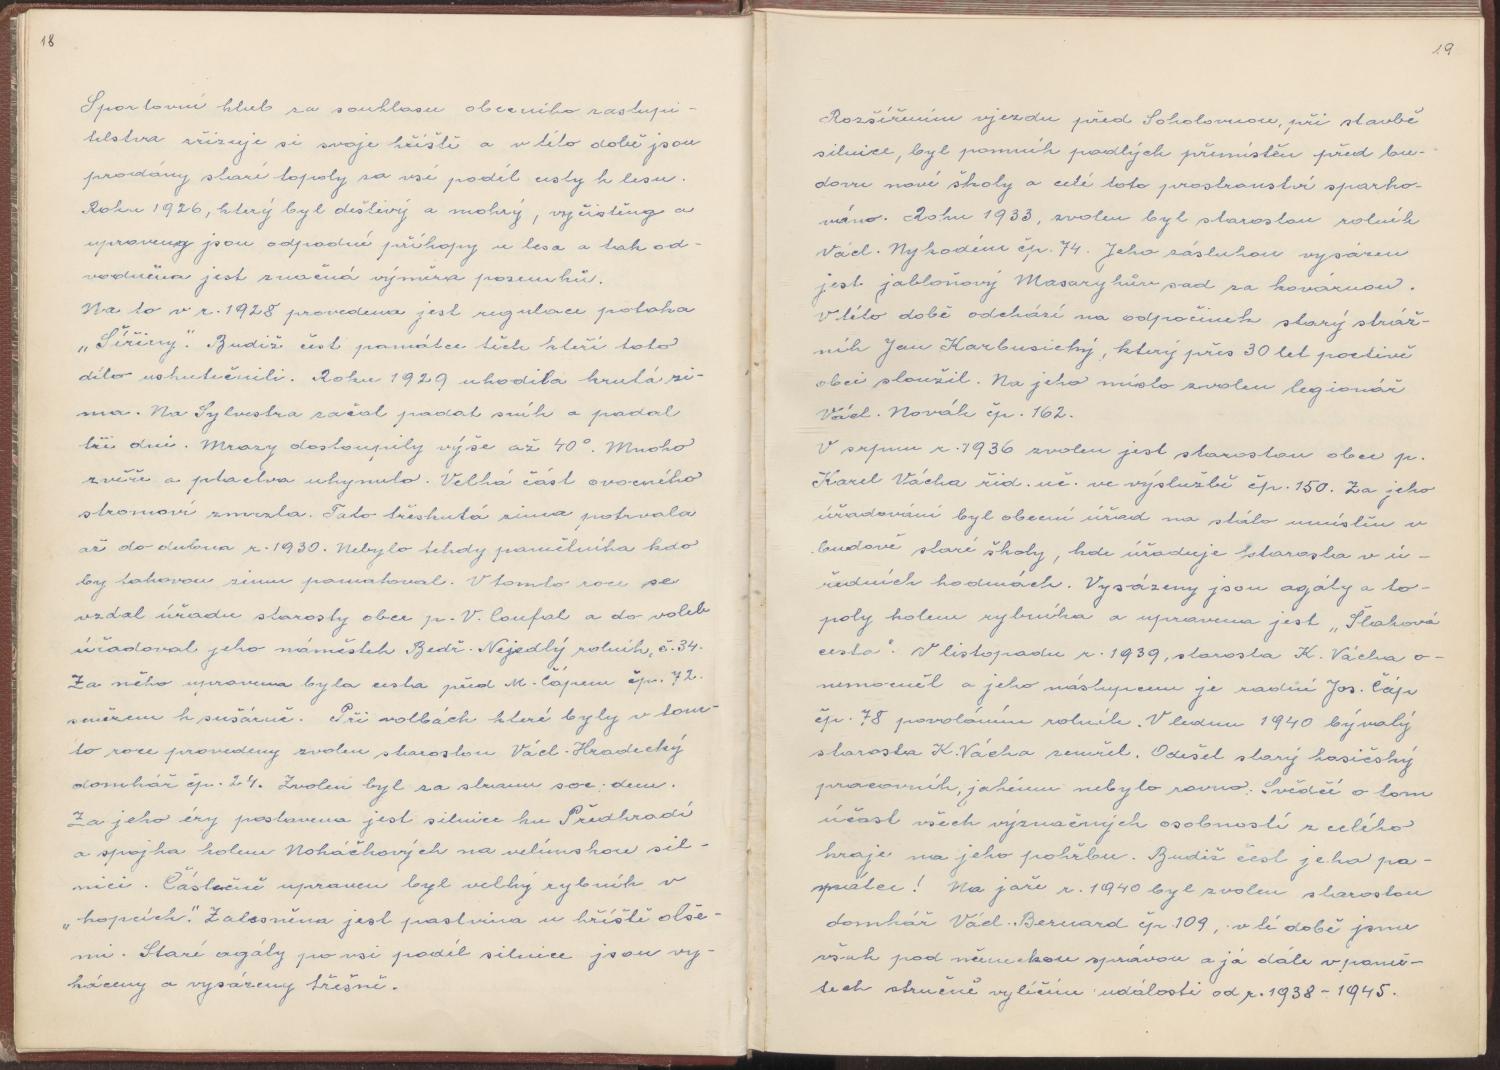 18
Sportovní klub za souhlasu obecního zastupi-
telstva zřizuje si svoje hřiště a v této době jsou
prodány staré topoly za vsí podél cesty k lesu.
Roku 1926, který byl deštivý a mokrý, vyčištěny a
upraveny jsou odpadné příkopy u lesa a tak od-
vodněna jest značná výměra pozemků.
Na to v r. 1928 provedena jest regulace potoka
„Šířiny". Budiž čest památce těch kteří toto
dílo uskutečnili. Roku 1929 uhodila krutá zi-
ma. Na Sylvestra začal padat sníh a padal
tři dni. Mrazy dostoupily výše až 40°. Mnoho
zvěře a ptactva uhynulo. Velká část ovocného
stromoví zmrzla. Tato třeskutá zima potrvala
až do dubna r. 1930. Nebylo tehdy pamětníka kdo
by takovou zimu pamatoval. V tomto roce se
vzdal úřadu starosty obce p. V. Coufal a do voleb
úřadoval jeho náměstek Bedř. Nejedlý rolník, č. 34.
Za něho upravena byla cesta před M. Čápem čp. 72.
směrem k sušárně. Při volbách které byly v tom-
to roce provedeny zvolen starostou Václ. Hradecký
domkář čp. 24. Zvolen byl za stranu soc. dem.
Za jeho éry postavena jest silnice ku Předhradí
a spojka kolem Noháčkových na velimskou sil-
nici. Částečně upraven byl velký rybník v
„kopcích." Zalesněna jest pastvina u hřiště olše-
mi. Staré agáty po vsi podél silnice jsou vy-
káceny a vysázeny třešně.
19
Rozšířením vjezdu před Sokolovnou, při stavbě
silnice, byl pomník padlých přemístěn před bu-
dovu nové školy a celé toto prostranství sparko-
váno. Roku 1933, zvolen byl starostou rolník
Václ. Nykodém čp. 74. Jeho zásluhou vysázen
jest jabloňový Masarykův sad za kovárnou.
V této době odchází na odpočinek starý stráž-
ník Jan Karbusický, který přes 30 let poctivě
obci sloužil. Na jeho místo zvolen legionář
Václ. Novák čp. 162.
V srpnu r. 1936 zvolen jest starostou obce p.
Karel Vácha říd. uč. ve výslužbě čp. 150. Za jeho
úřadování byl obecní úřad na stálo umístěn v
budově staré školy, kde úřaduje starosta v ú-
ředních hodinách. Vysázeny jsou agáty a to-
poly kolem rybníka a upravena jest „Šlaková
cesta". V listopadu r. 1939, starosta K. Vácha o-
nemocněl a jeho nástupcem je radní Jos. Čáp
čp. 78 povoláním rolník. V lednu 1940 bývalý
starosta K. Vácha zemřel. Odešel starý hasičský
pracovník, jakému nebylo rovno. Svědčí o tom
účast všech význačných osobností z celého
kraje na jeho pohřbu. Budiž čest jeho pa-
mátce! Na jaře r. 1940 byl zvolen starostou
domkář Václ. Bernard čp. 109, v té době jsme
však pod německou správou a já dále v pamě-
tech stručně vylíčím události od r. 1938-1945.